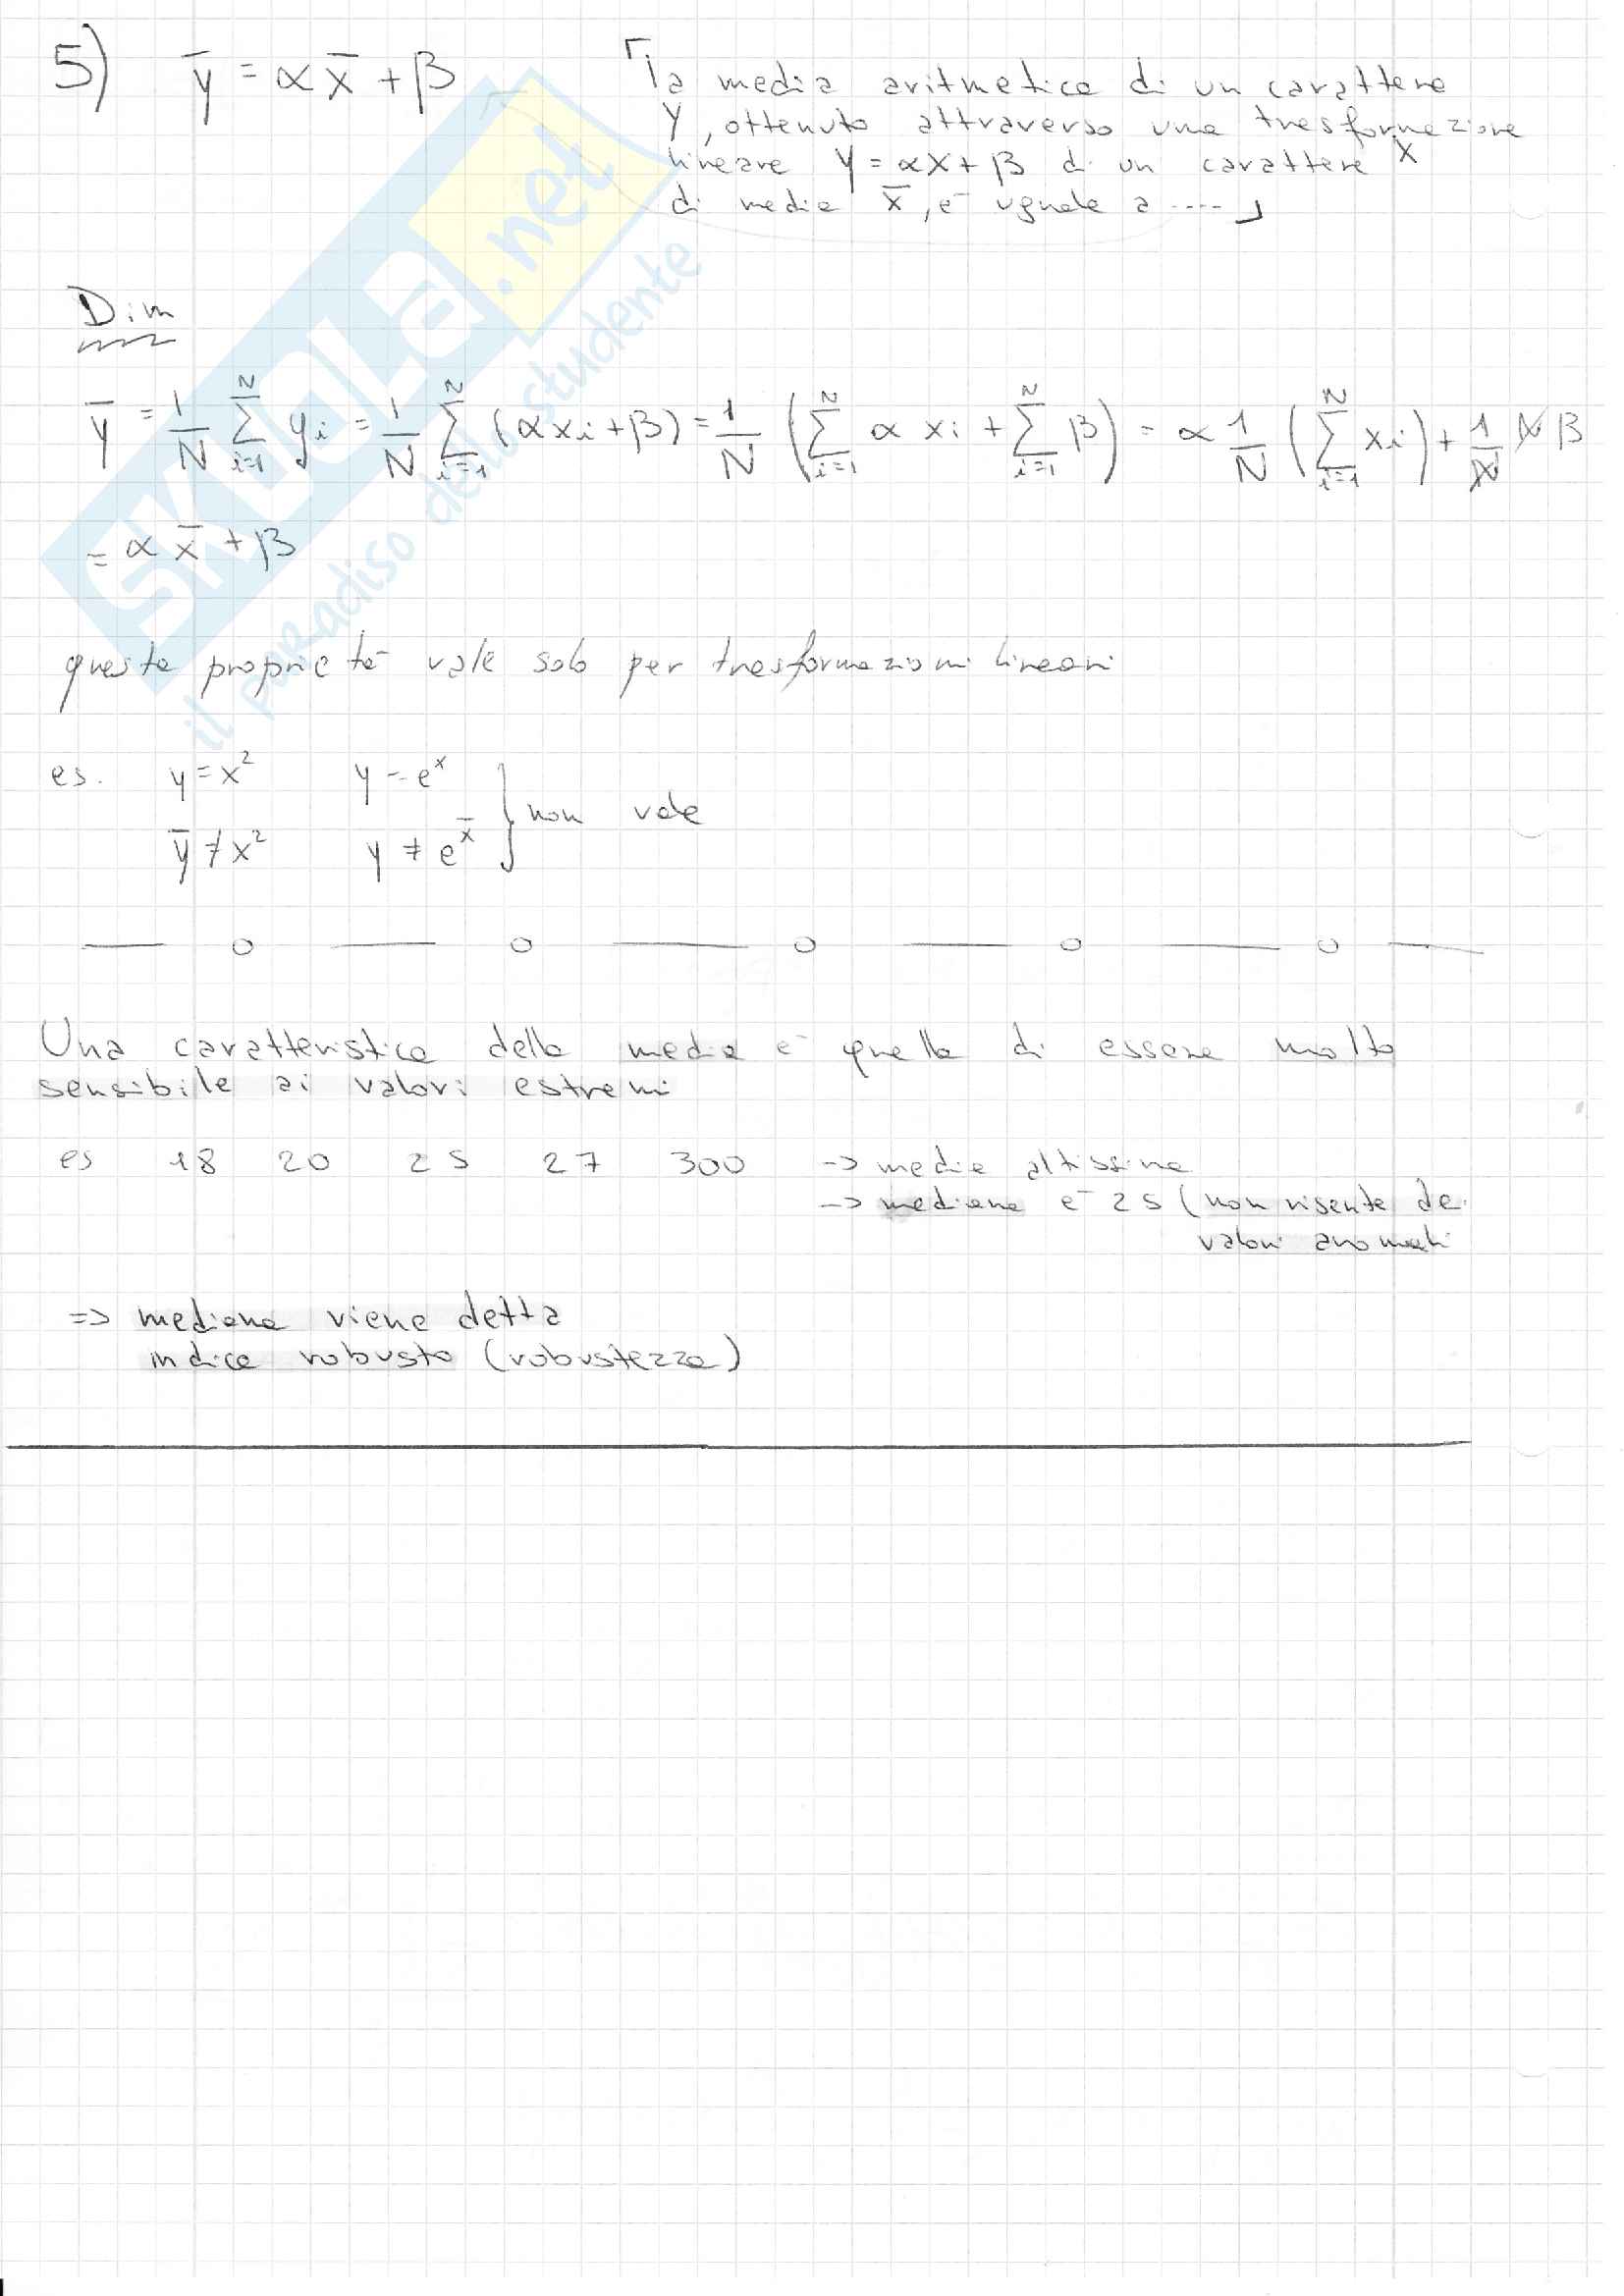 5) ȳ = αx̄ + β
⌜la media aritmetica di un carattere
Y, ottenuto attraverso una trasformazione
lineare Y = αX + β di un carattere X
di media x̄, è uguale a ----⌟
Dim
ȳ = 1/N ∑_{i=1}^{N} yi = 1/N ∑_{i=1}^{N} (αxi + β) = 1/N (∑_{i=1}^{N} α xi + ∑_{i=1}^{N} β) = α 1/N (∑_{i=1}^{N} xi) + 1/N N β
= α x̄ + β
questa proprietà vale solo per trasformazioni lineari
es. y = x² y = e^x
ȳ ≠ x² y ≠ e^x̄ } non vale
— o — o — o — o — o —
Una caratteristica della media è quella di essere molto
sensibile ai valori estremi
es 18 20 25 27 300 -> media altissima
-> mediana è 25 (non risente dei
valori anomali
=> mediana viene detta
indice robusto (robustezza)
SKUOLA.net
il paradiso dello studente